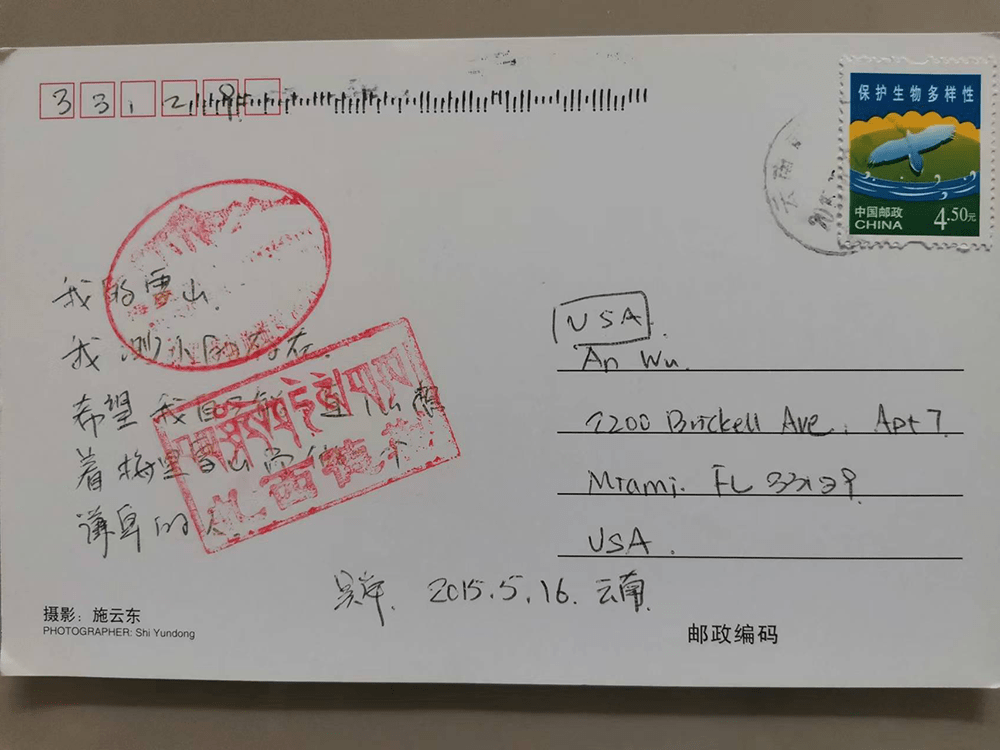 33129
保护生物多样性
中国邮政
CHINA
4.50元
云南
我的雪山
我 渺小的存在.
希望 我 着
着梅里雪山 个
谦卑的人.
扎西德勒
USA.
An Wu.
1200 Brickell Ave. Apt 7
Miami. FL 33129.
USA.
吴岸. 2015.5.16. 云南.
摄影：施云东
PHOTOGRAPHER: Shi Yundong
邮政编码